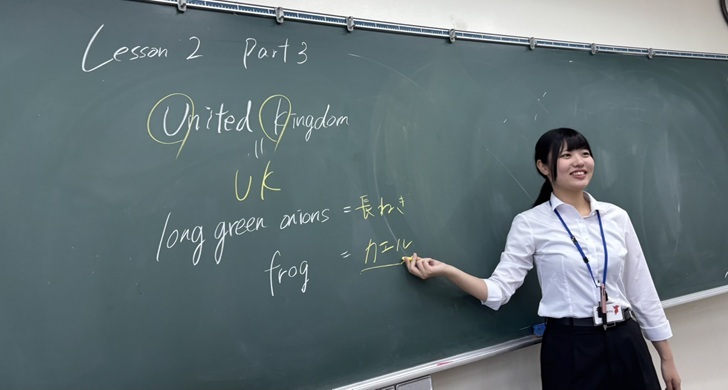 Lesson 2 Part 3
United Kingdom
=
UK
long green onions = 長ねぎ
frog = カエル